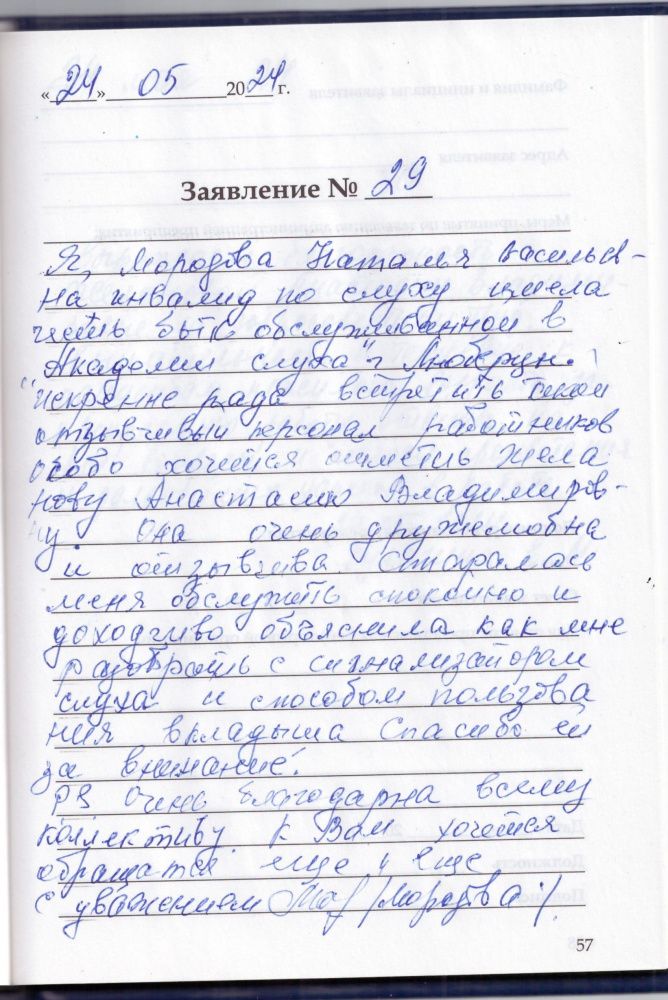 «24» 05 2024 г.
Заявление № 29
Я, Морозова Наталья Василье-
на инвалид по слуху имела
честь быть обслуживанной в
Академии слуха" г Люберцы.
"искренне рада встретить такой
отзывчивый персонал работников
особо хочется отметить
нову Анастасию Владимиров-
ну. Она очень дружелюбна
и отзывчива Старалась
меня обслужить спокойно и
доходчиво объяснила как мне
с сигнализатором
слуха и способом пользова
ния вкладыша Спасибо ей
за внимание!
PS Очень благодарна всему
коллективу. К Вам хочется
обращатся еще и еще
С уважением /Морозова/.
57